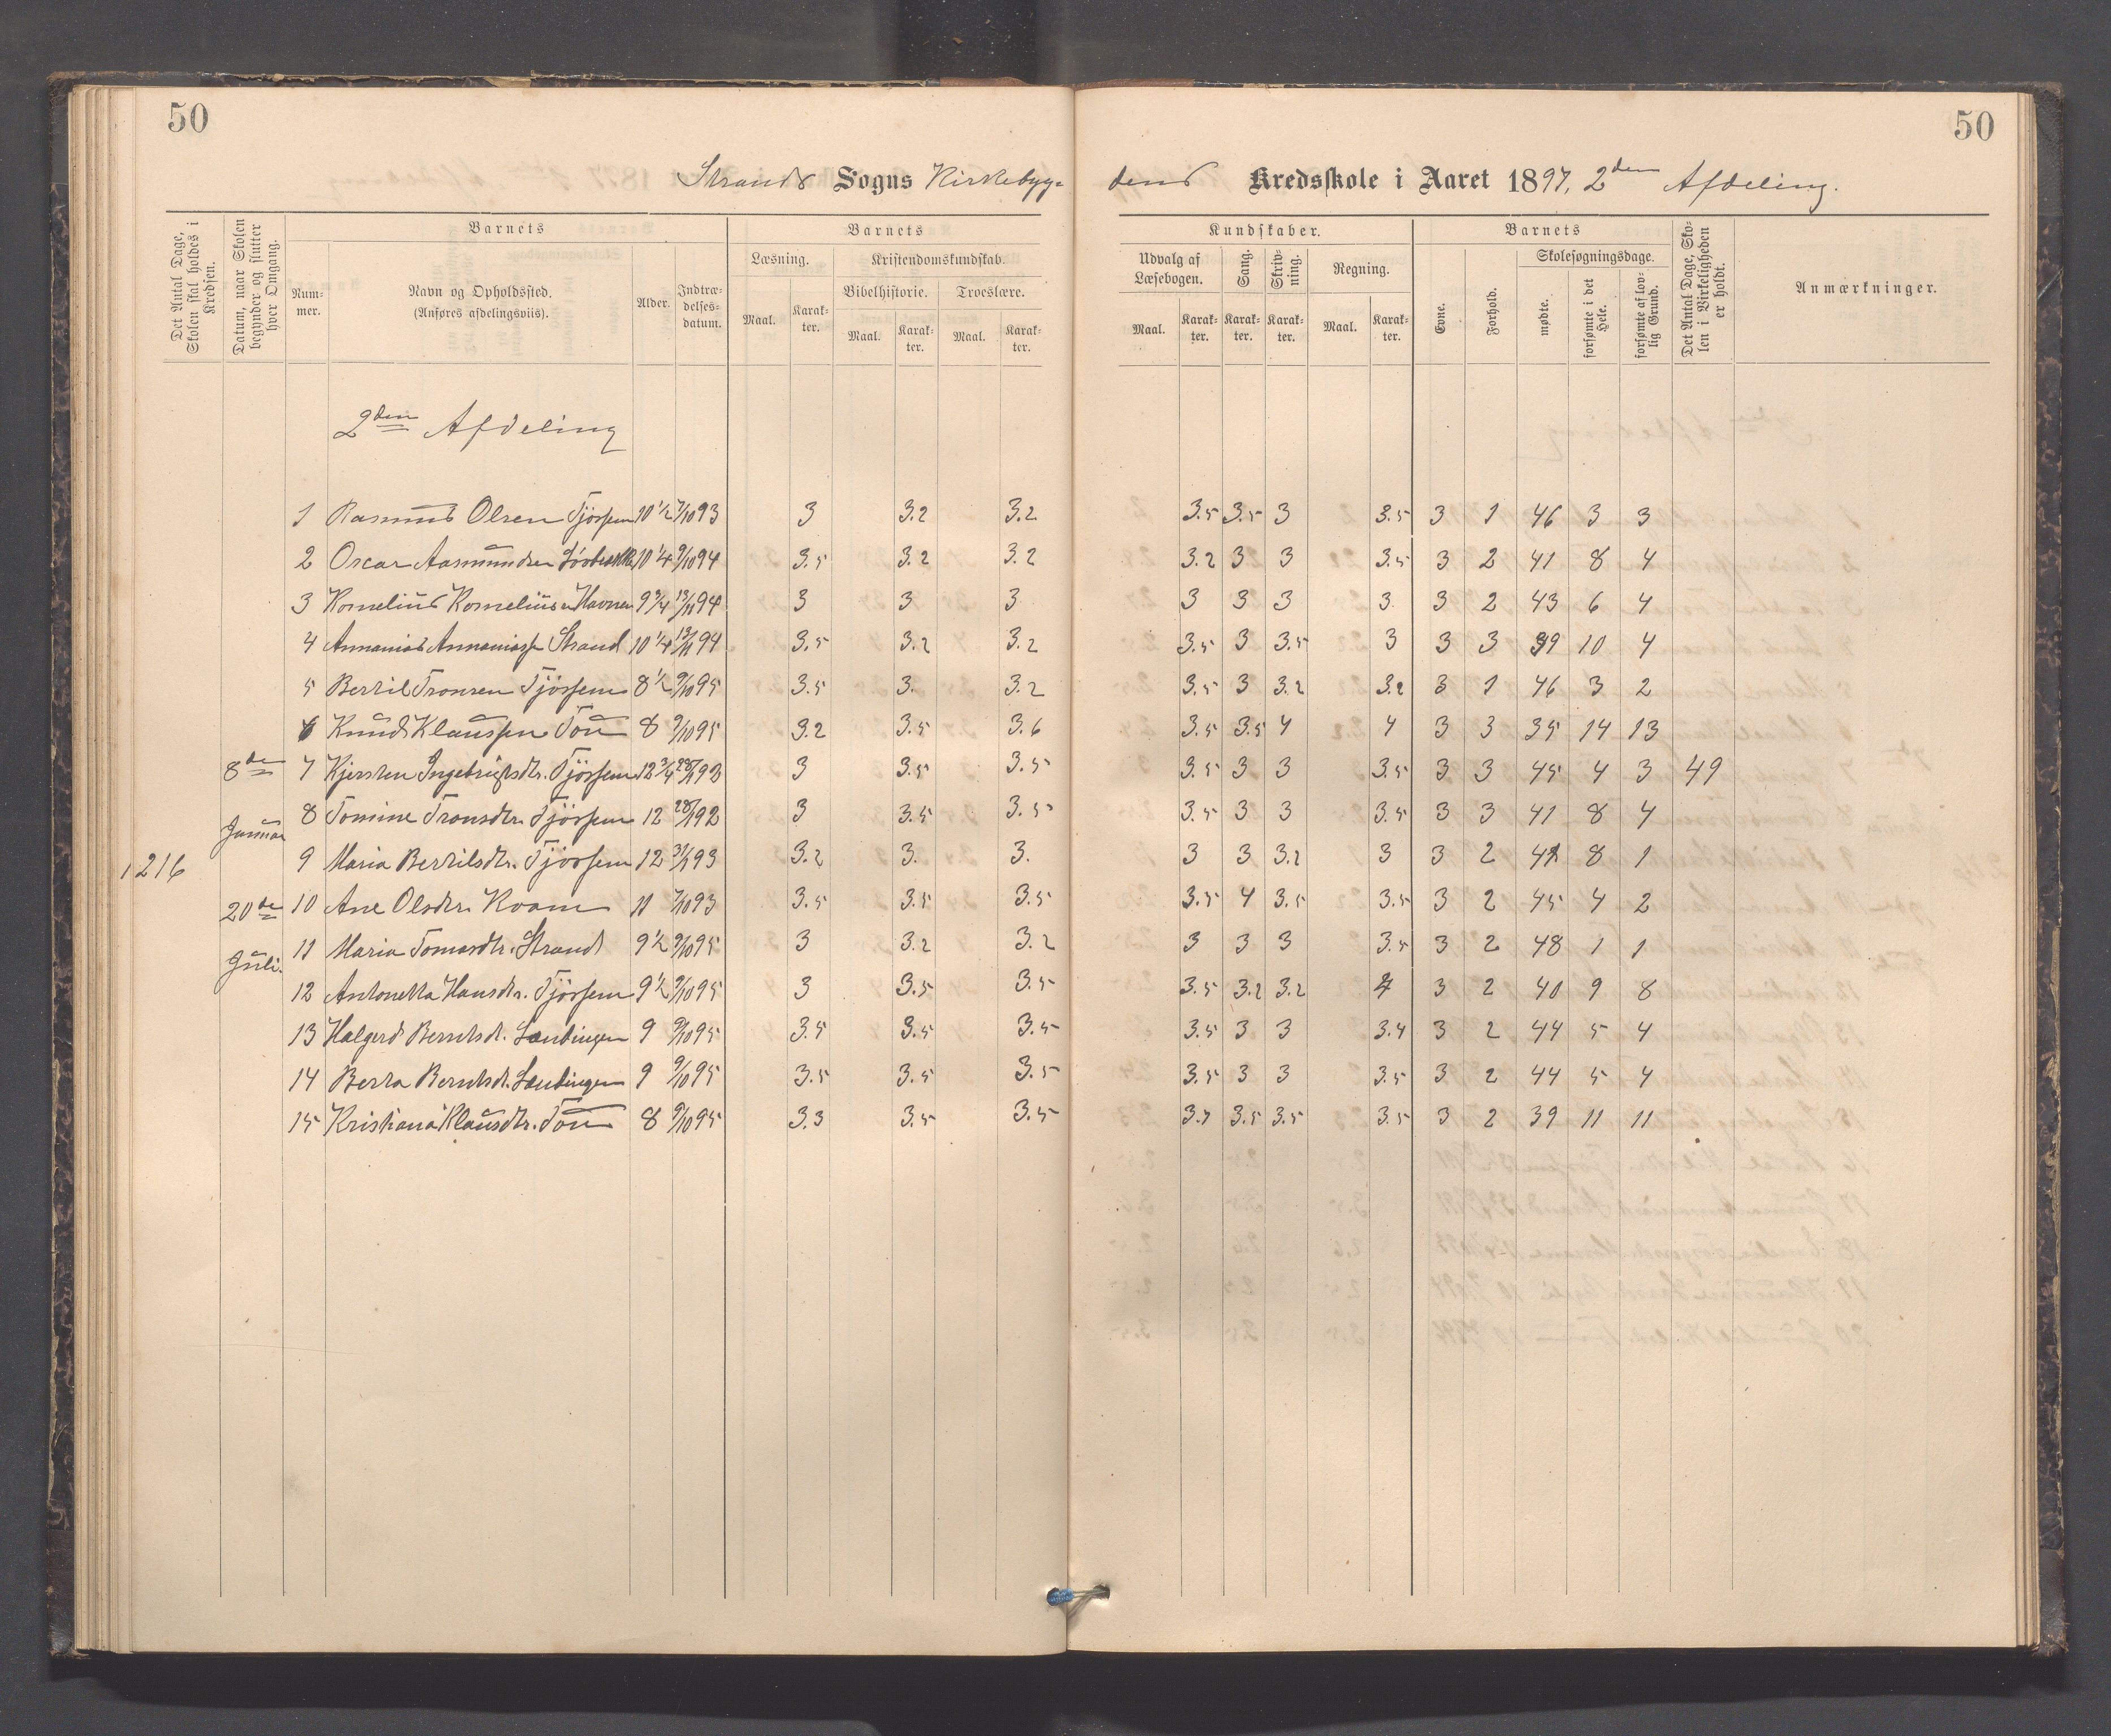 50
50
Strands Sogns Kirkebyg= dens Kredsskole i Aaret 1897, 2den Afdeling.
Det Antal Dage, Skolen skal holdes i Kredsen.
Datum, naar Skolen begynder og slutter hver Omgang.
Barnets
Num-mer.
Navn og Opholdssted.
(Anføres afdelingsviis).
Alder.
Indtræ-delses-datum.
Barnets
Læsning.
Maal.
Karak-ter.
Kristendomskundskab.
Bibelhistorie.
Maal.
Karak-ter.
Troeslære.
Maal.
Karak-ter.
Kundskaber.
Udvalg af Læsebogen.
Maal.
Karak-ter.
Sang.
Karak-ter.
Skriv-ning.
Karak-ter.
Regning.
Maal.
Karak-ter.
Barnets
Evne.
Forhold.
Skolesøgningsdage.
mødte.
forsømte i det Hele.
forsømte af lov-lig Grund.
Det Antal Dage, Sko-len i Virkeligheden er holdt.
Anmærkninger.
2den Afdeling
1 Rasmus Olsen Tjössem 10 1/2 7/10 93 3 3.2 3.2 3.5 3.5 3 3.5 3 1 46 3 3
2 Oscar Aasmundsen 10 1/4 9/10 94 3.5 3.2 3.2 3.2 3 3 3.5 3 2 41 8 4
3 Kornelius Korneliusen Havnen 9 3/4 13/11 94 3 3 3 3 3 3 3 3 2 43 6 4
4 Annanias Annaniass Strand 10 1/4 13/11 94 3.5 3.2 3.2 3.5 3 3.5 3 3 3 39 10 4
5 Bertil Tronsen Tjössem 8 1/2 9/10 95 3.5 3. 3.2 3.5 3 3.2 3.2 3 1 46 3 2
6 Knud Klaussen Tou 8 9/10 95 3.2 3.5 3.6 3.5 3.5 4 4 3 3 35 14 13
8de 7 Kjersten Ingebrigtsdtr. Tjössem 12 3/4 3 3.5 3.5 3.5 3 3 3.5 3 3 45 4 3 49
Januar 8 Tomine Tronsdtr. Tjössem 12 28/1 92 3 3.5 3.5 3.5 3 3 3.5 3 3 41 8 4
1216 9 Maria Bertilsdtr. Tjössem 12 3/1 93 3.2 3. 3. 3 3 3.2 3 3 2 41 8 1
20de 10 Ane Olsdtr. Kvam 11 7/10 93 3.5 3.5 3.5 3.5 4 3.5 3.5 3 2 45 4 2
Juli. 11 Maria Tomasdtr. Strand 9 1/2 9/10 95 3 3.2 3.2 3 3 3 3.5 3 2 48 1 1
12 Antonetta Hansdtr. Tjössem 9 1/2 9/10 95 3 3.5 3.5 3.5 3.2 3.2 4 3 2 40 9 8
13 Halgerd Berntsdt. 9 9/10 95 3.5 3.5 3.5 3.5 3 3 3.4 3 2 44 5 4
14 Berta Berntsdt. 9 9/10 95 3.5 3.5 3.5 3.5 3 3 3.5 3 2 44 5 4
15 Kristiana Klausdtr. Tou 8 9/10 95 3.3 3.5 3.5 3.7 3.5 3.5 3.5 3 2 39 11 11